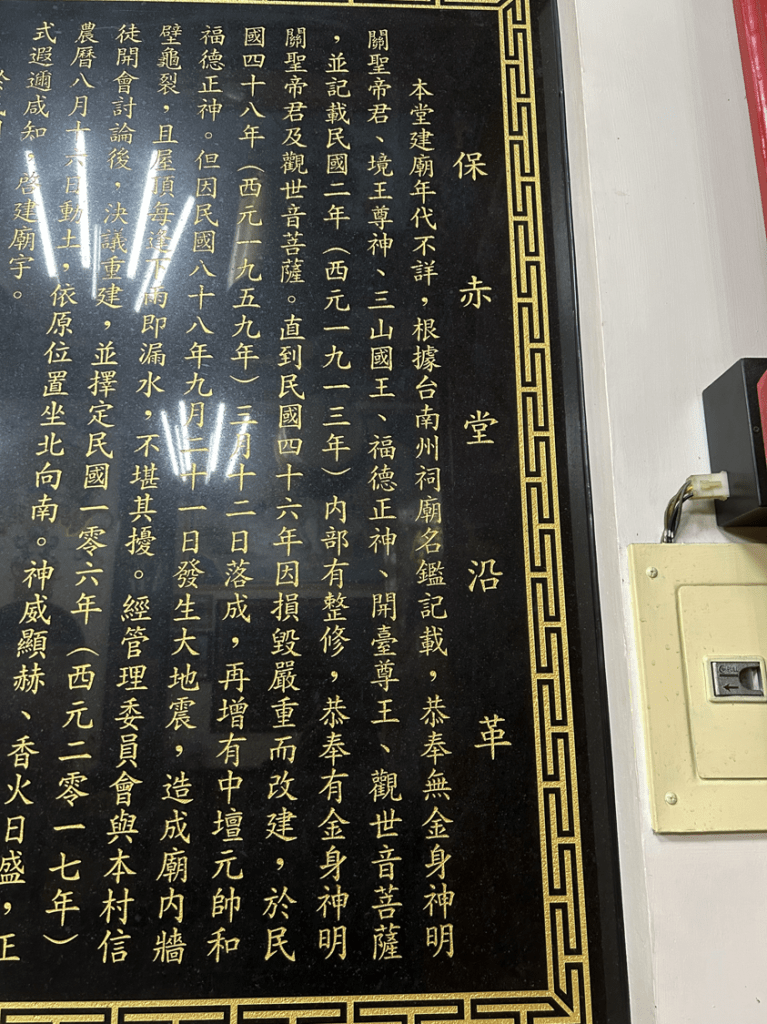 保赤堂沿革
本堂建廟年代不詳，根據台南州祠廟名鑑記載，恭奉無金身神明
關聖帝君、境王尊神、三山國王、福德正神、開臺尊王、觀世音菩薩
，並記載民國二年（西元一九一三年）內部有整修，恭奉有金身神明
關聖帝君及觀世音菩薩。直到民國四十六年因損毀嚴重而改建，於民
國四十八年（西元一九五九年）三月十二日落成，再增有中壇元帥和
福德正神。但因民國八十八年九月二十一日發生大地震，造成廟內牆
壁龜裂，且屋頂每逢下雨即漏水，不堪其擾。經管理委員會與本村信
徒開會討論後，決議重建，並擇定民國一零六年（西元二零一七年）
農曆八月十六日動土，依原位置坐北向南。神威顯赫、香火日盛，正
式遐邇咸知，啓建廟宇。